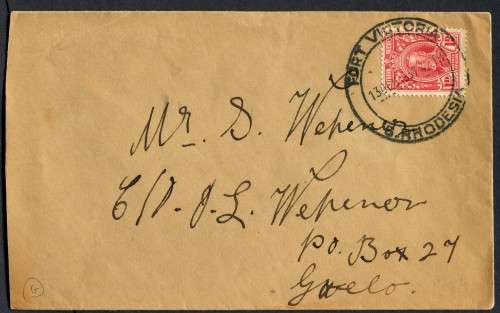 FORT VICTORIA
S. RHODESIA
Mr. S. Wepener
C/O. J. L. Wepener
P.O. Box 27
Gwelo.
G